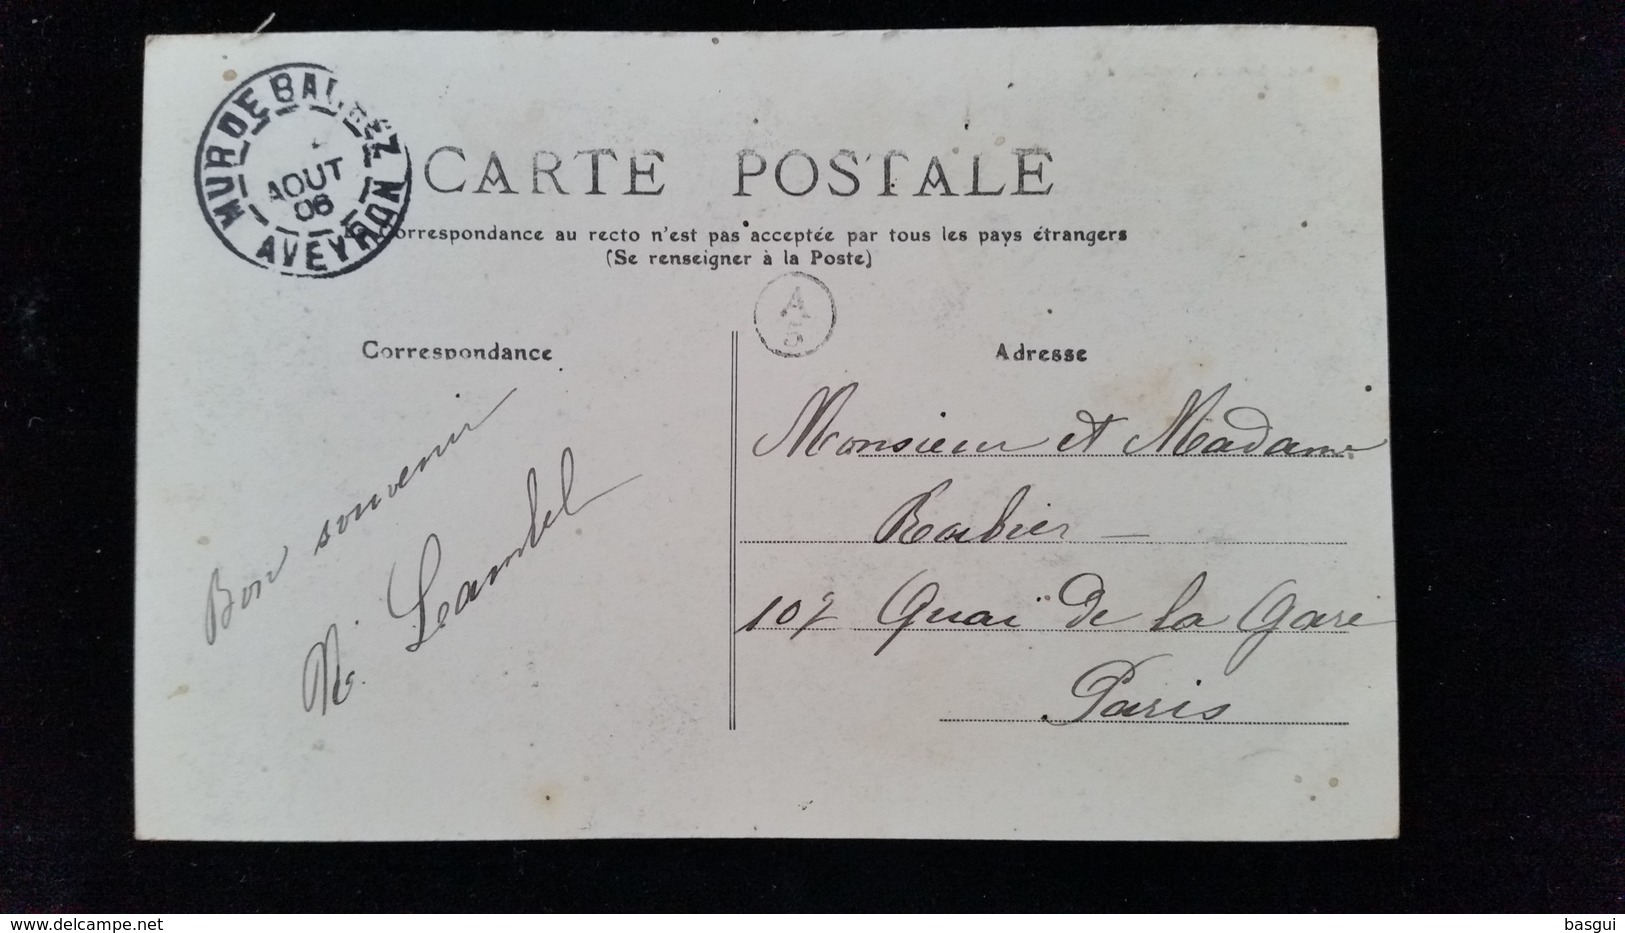 MUR DE BARREZ
AOUT
06
AVEYRON
CARTE POSTALE
La Correspondance au recto n'est pas acceptée par tous les pays étrangers
(Se renseigner à la Poste)
A
5
Correspondance
Adresse
Bon souvenir
Monsieur et Madame
Barbier —
107 Quai de la Gare
Paris
basgui